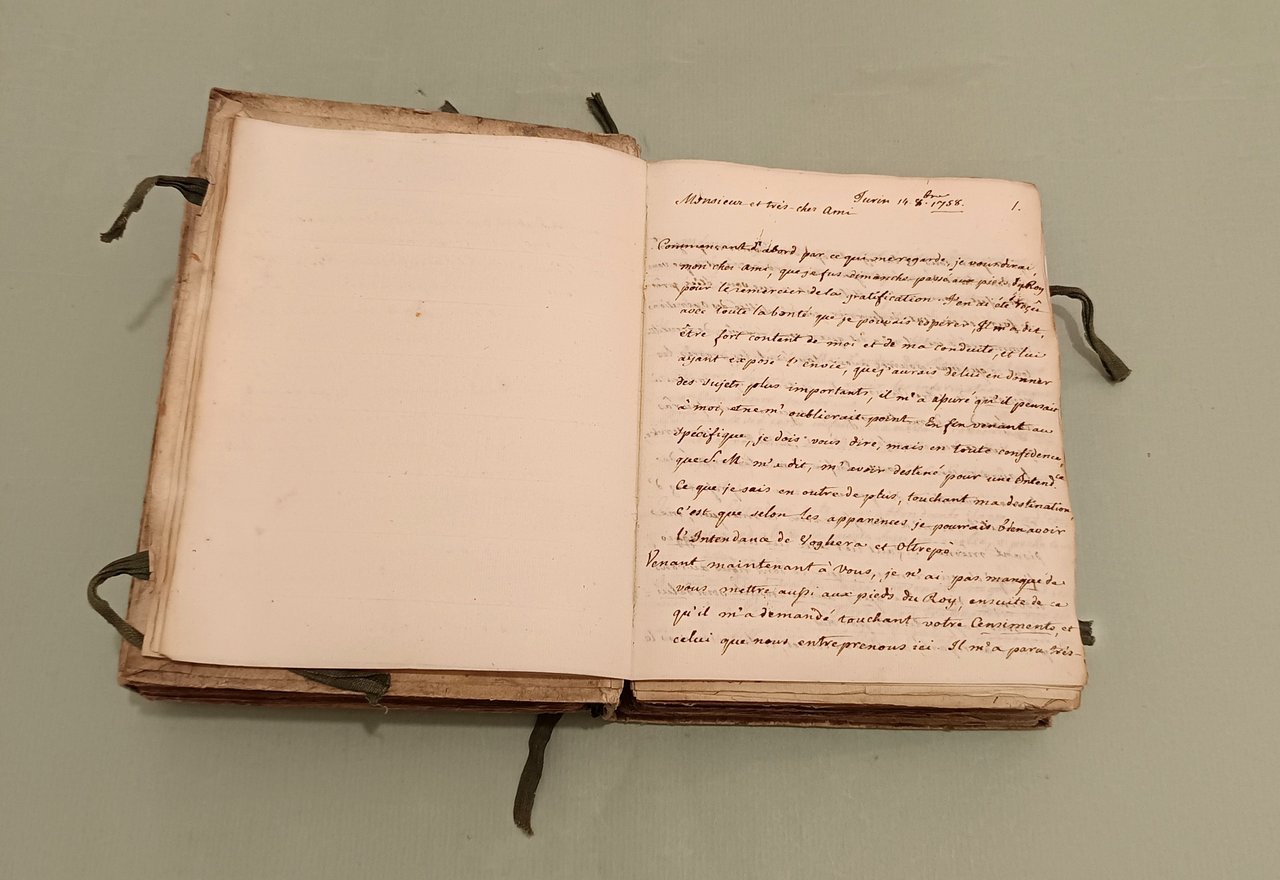 Turin 14 8.bre 1758. 1.
Monsieur et très cher Ami
Commençant d'abord par ce qui me regarde, je vous dirai
mon cher Ami, que je fus dimanche passé aux pieds du Roy
pour le remercier de la gratification. J'en ai été reçu
avec toute la bonté que je pouvais esperer, Il m'a dit,
être fort content de moi et de ma conduite, et lui
ayant exposé l'envie, que j'aurais de lui en donner
des sujets plus importants, il m'a assuré qu'il pensait
à moi, et ne m'oublierait point. En fin venant au
spécifique, je dois vous dire, mais en toute confidence,
que S. M m'a dit, m'avoir destiné pour une Intend.ce
Ce que je sais en outre de plus, touchant ma destination,
c'est que selon les apparences je pourrais bien avoir
l'Intendance de Voghera et Oltrepò
Venant maintenant à Vous, je n'ai pas manqué de
vous mettre aussi aux pieds du Roy, ensuite de ce
qu'il m'a demandé touchant votre Censimento, et
celui que nous entreprenons ici. Il m'a paru très